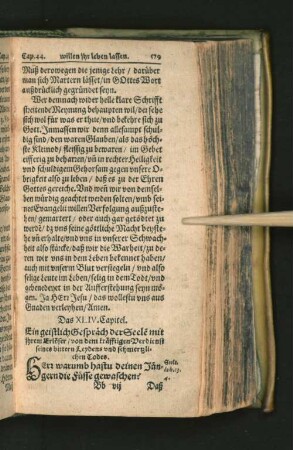 Cap. 44. willen jhr leben lassen. 579
Muß derowegen die jenige Lehr / darüber
man sich Martern lässet / in GOttes Wort
außdrücklich gegründet seyn.
Wer demnach wider helle klare Schrifft
streitende Meynung behaupten wil / der sehe
sich wol für was er thue / und bekehre sich zu
Gott. Inmassen wir denn allesampt schul-
dig sind / den waren Glauben / als das höch-
ste Kleinod / fleissig zu bewaren / im Gebet
eifferig zu beharren / uñ in rechter Heiligkeit
und schuldigem Gehorsam gegen unsere O-
brigkeit also zu leben / daß es zu der Ehren
Gottes gereiche. Und weñ wir von demsel-
ben würdig geachtet werden solten / umb sei-
nes Evangelii willen Verfolgung außzuste-
hen / gemartert / oder auch gar getödtet zu
werdẽ / dz uns seine göttliche Macht beyste-
he uñ erhalte / und uns in unserer Schwach-
heit also stärcke / daß wir die Warheit / zu de-
ren wir uns in dem Leben bekennet haben /
auch mit unserm Blut versiegeln / und also
selige Leute im Leben / selig in dem Todt / und
gebenedeyet in der Aufferstehung seyn mö-
gen. Ja HErr Jesu / das wollestu uns aus
Gnaden verleyhen / Amen.
Das XLIV. Capitel.
Ein geistlich Gespräch der Seele mit
jhrem Erlöser / von dem kräfftigen Verdienst
seines bittern Leydens und schmertzli-
chen Todes.
HErr warumb hastu deinen Jün-
gern die Füsse gewaschen?
Bb vij Daß